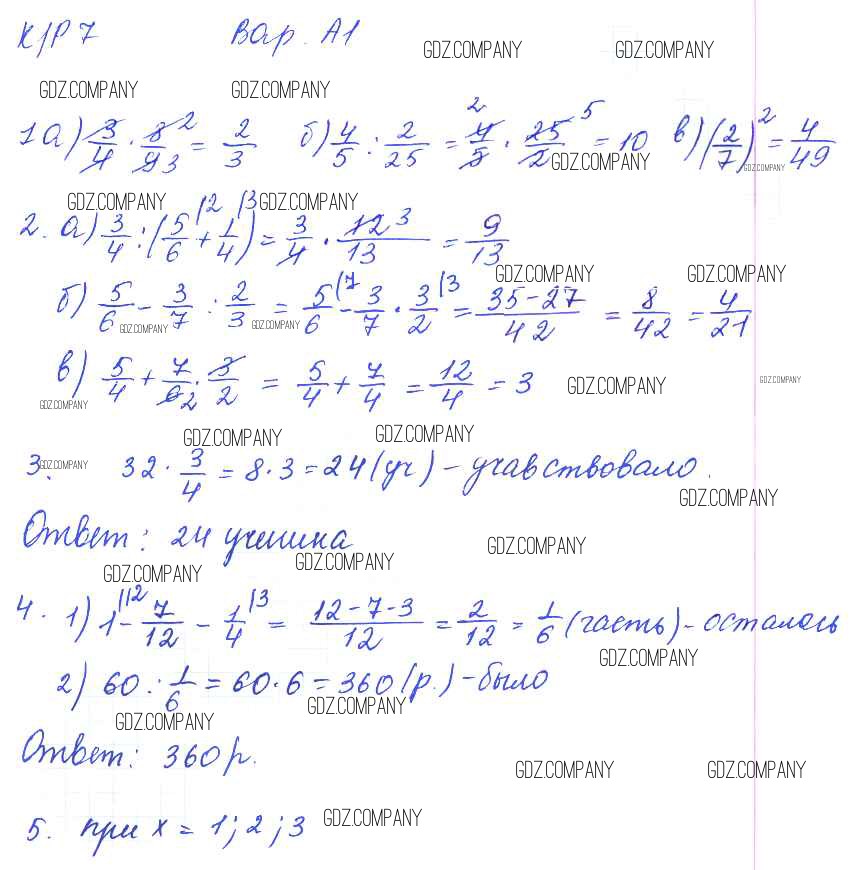 К/Р 7 Вар. А1
GDZ.COMPANY GDZ.COMPANY
GDZ.COMPANY GDZ.COMPANY
1 а) 3/4 · 8²/9 3 = 2/3 б) 4/5 : 2/25 = ²4/5 · 25⁵/2 = 10 в) (2/7)² = 4/49
GDZ.COMPANY GDZ.COMPANY
GDZ.COMPANY GDZ.COMPANY
2. а) 3/4 : (5/6 |2 + 1/4 |3) = 3/4 · 12³/13 = 9/13
GDZ.COMPANY GDZ.COMPANY
б) 5/6 - 3/7 : 2/3 = 5/6 |7 - 3/7 · 3/2 |3 = 35-27/42 = 8/42 = 4/21
GDZ.COMPANY GDZ.COMPANY
в) 5/4 + 7/6 2 · 3/2 = 5/4 + 7/4 = 12/4 = 3 GDZ.COMPANY GDZ.COMPANY
GDZ.COMPANY
GDZ.COMPANY GDZ.COMPANY
3. 32 · 3/4 = 8·3 = 24 (уч) - учавствовало.
GDZ.COMPANY
GDZ.COMPANY
Ответ: 24 ученика GDZ.COMPANY
GDZ.COMPANY GDZ.COMPANY
4. 1) 1 |12 - 7/12 - 1/4 |3 = 12-7-3/12 = 2/12 = 1/6 (часть) - осталось
GDZ.COMPANY
2) 60 : 1/6 = 60·6 = 360 (р.) - было
GDZ.COMPANY GDZ.COMPANY
Ответ: 360 р. GDZ.COMPANY GDZ.COMPANY
5. при x = 1; 2; 3 GDZ.COMPANY